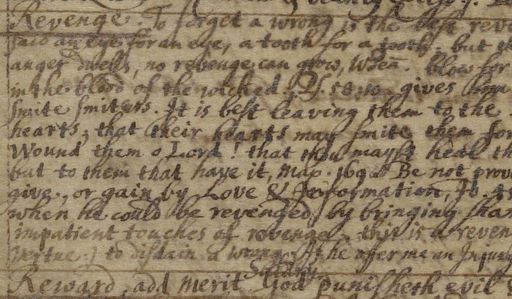 Revenge. To forget a wrong is the best reve
said an eye for an eye, a tooth for a tooth. but th
anger dwells, no revenge can grow, when blow for
in the blood of the wicked Ps. 58.10 gives
smite smiters. It is best leaving them to the
hearts, that their hearts may smite them for
Wound them o Lord! that thou mayst heal th
but to them that have it, map. 169. Be not prov
give, or gain by Love & Information, 
when he could be revenged, by bringing sha
impatient touches of revenge, this is a reven
vertue:) to disdain a wrong. If he offer me an Injury
Reward, add merit God punisheth evil